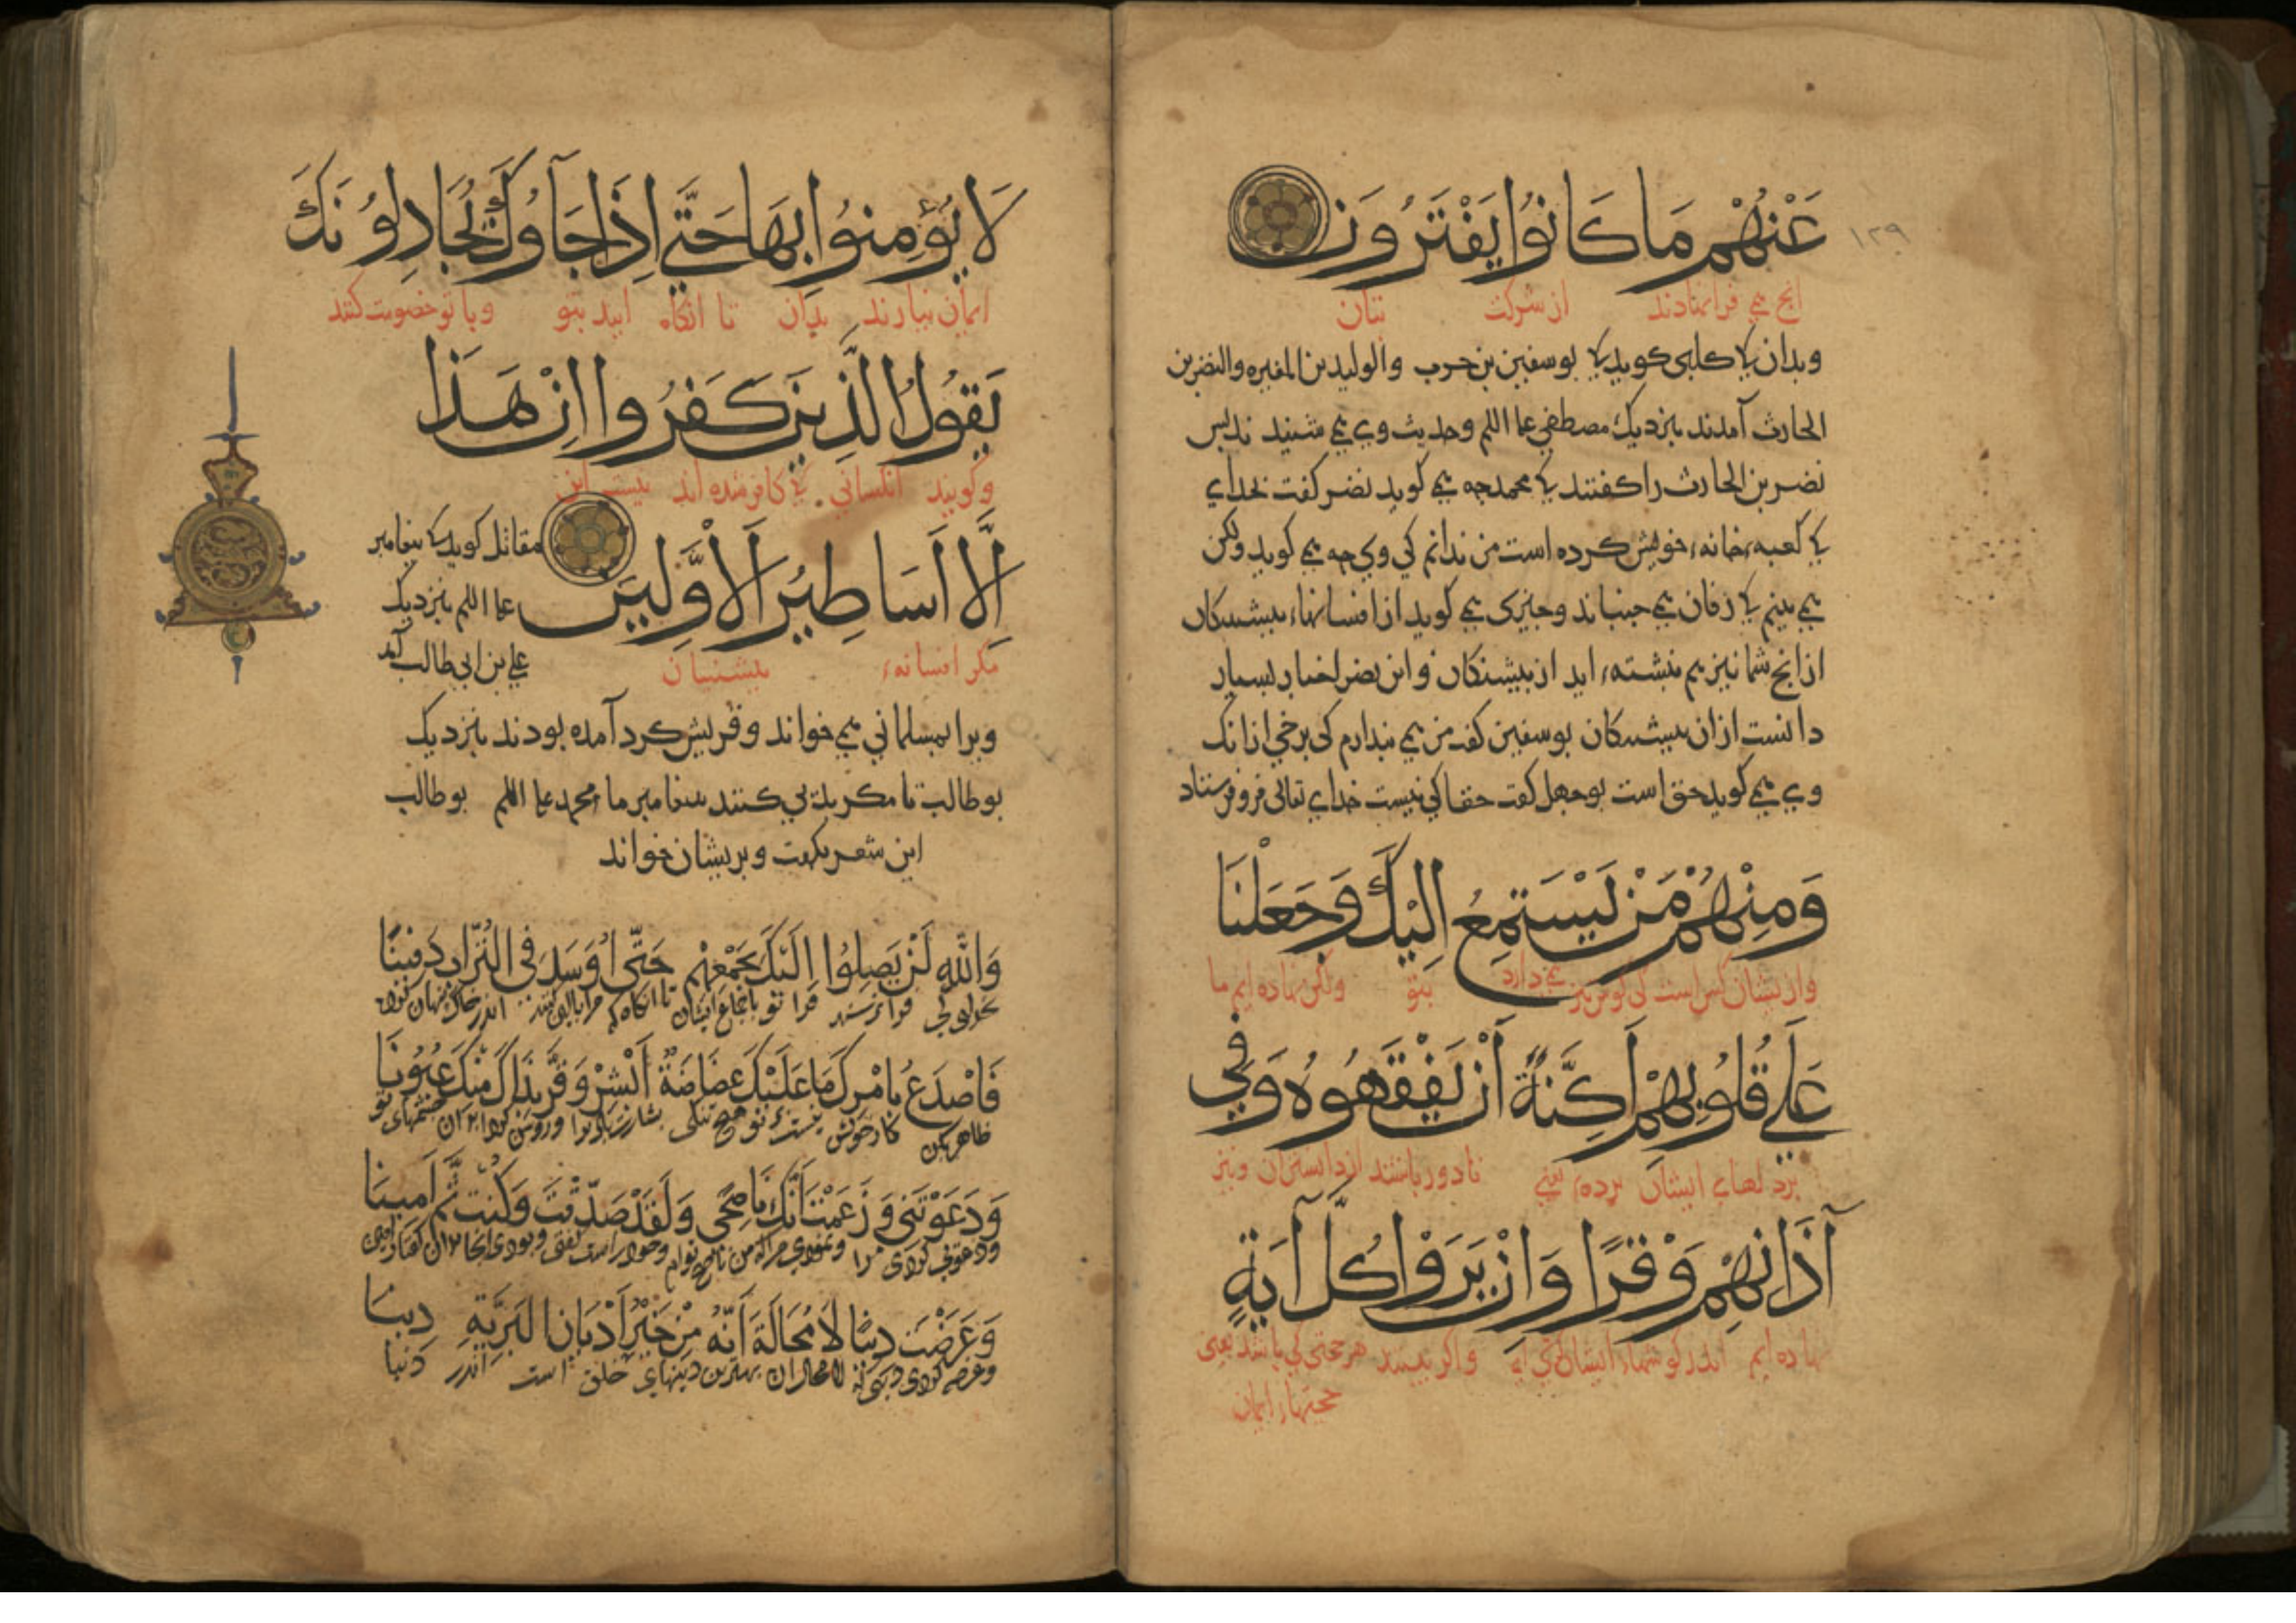 عَنْهُمْ مَا كَانُوا يَفْتَرُونَ
١٢٩
انج می فرا نهادند از شرکت بتان
وبدان کی کلبی کوید کی بوسفین بن حرب والولید بن المغیره والنضر بن
الحارث آمدند بنزدیک مصطفی علیه السلم وحدیث وی می شنیدند بس
نضر بن الحارث را کفتند کی محمد چه می کوید نضر کفت بخدای
کی کعبه خانه خویش کرده است من ندانم کی وی چه می کوید ولکن
می بینم کی زفان می جنباند و چیزی می کوید از افسانهاء بیشینکان
از انج شما نیز هم نبشته اید از بیشینکان و این نضر اخبار بسیار
دانست از ان بیشینکان بوسفین کفت من می بندارم کی برخی از انک
وی می کوید حق است بوجهل کفت حقا کی نیست خدای تعالی فرو فرستاد
وَمِنْهُمْ مَنْ يَسْتَمِعُ إِلَيْكَ وَجَعَلْنَا
واز یشان کس است کی کوش می دارد بتو ولکن نهاده ایم ما
عَلَى قُلُوبِهِمْ أَكِنَّةً أَنْ يَفْقَهُوهُ وَفِي
بر دلهای ایشان برده یعنی تا دور باشند از دانستن ان ونیز
آذَانِهِمْ وَقْرًا وَإِنْ يَرَوْا كُلَّ آيَةٍ
نهاده ایم اندر کوشهاء ایشان کری واکر ببینند هر حجتی کی باشد یعنی
حجتهاء ایمان
لَا يُؤْمِنُوا بِهَا حَتَّى إِذَا جَآؤُكَ يُجَادِلُونَكَ
ایمان نیارند بدان تا انکاه ایند بتو وبا تو خصومت کنند
يَقُولُ الَّذِينَ كَفَرُوا إِنْ هَذَا
وکویند انکسانی کی کافر شده اند نیست این
إِلَّا أَسَاطِيرُ الْأَوَّلِينَ
مکر افسانهء بیشینیان
مقاتل کوید کی بیغامبر
علیه السلم بنزدیک
علی بن ابی طالب آمد
ویرا بمسلمانی می خواند وقریش کرد آمده بودند بنزدیک
بوطالب تا مکر بدیی کنند ببیغامبر ما محمد علیه السلم بوطالب
این شعر بکفت وبریشان خواند
وَاللهِ لَنْ يَصِلُوا إِلَيْكَ بِجَمْعِهِمْ حَتَّى أُوَسَّدَ فِي التُّرَابِ دَفِينًا
فرا تو باجماع ایشان تا انکاه کی مرا بالین اندر خاک
فَاصْدَعْ بِأَمْرِكَ مَا عَلَيْكَ غَضَاضَةٌ أَبْشِرْ وَقَرَّ بِذَاكَ مِنْكَ عُيُونَا
ظاهر بکن کار خویش نیست بر تو هیچ تنکی بشارت باد ترا وروشن چشمهای تو
وَدَعَوْتَنِي وَزَعَمْتَ أَنَّكَ نَاصِحِي وَلَقَدْ صَدَقْتَ وَكُنْتَ ثَمَّ أَمِينَا
ودعوت کردی مرا
وَعَرَضْتَ دِينًا لَا مُحَالَةَ أَنَّهُ مِنْ خَيْرِ أَدْيَانِ الْبَرِيَّةِ دِينَا
وعرضه کردی دینی بهترین دینهای خلق است اندر دنیا